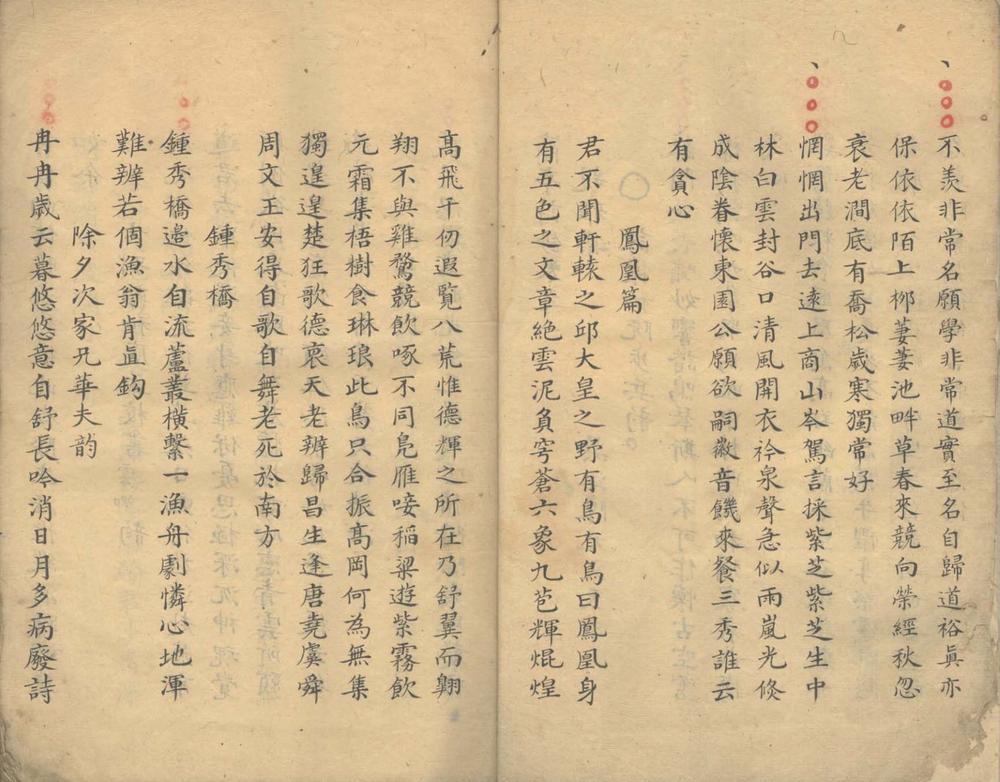 不羨非常名願學非常道實至名自歸道裕眞亦
保依依陌上柳萋萋池畔草春來競向榮經秋忽
衰老澗底有喬松歲寒獨常好
惘惘出門去遠上商山岑駕言採紫芝紫芝生中
林白雲封谷口清風開衣衿泉聲急似雨嵐光倏
成陰眷懷東園公願欲嗣徽音饑來餐三秀誰云
有貪心
○鳳凰篇
君不聞軒轅之邱大皇之野有鳥有鳥曰鳳凰身
有五色之文章絶雲泥負穹蒼六象九苞輝焜煌
高飛千仞遐覽八荒惟德輝之所在乃舒翼而翺
翔不與雞鶩競飲啄不同鳧雁唼稻粱遊紫霧飲
元霜集梧樹食琳琅此鳥只合振高岡何為無集
獨遑遑楚狂歌德衰天老辨歸昌生逢唐堯虞舜
周文王安得自歌自舞老死於南方
鍾秀橋
鍾秀橋邉水自流蘆叢橫繫一漁舟劇憐心地渾
難辨若個漁翁肯直鈎
除夕次家兄華夫韵
冉冉歳云暮悠悠意自舒長吟消日月多病廢詩